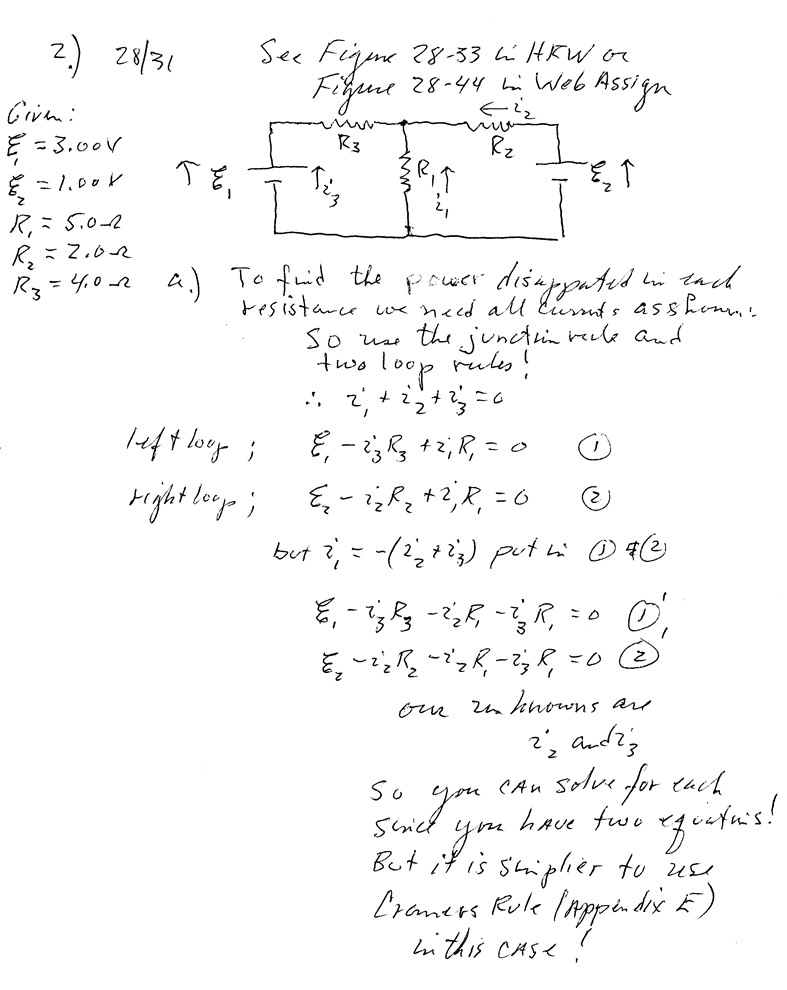 2.) 28/31 See Figure 28-33 in HRW or
Figure 28-44 in Web Assign
Given:
ℰ₁ = 3.00V
ℰ₂ = 1.00V
R₁ = 5.0Ω
R₂ = 2.0Ω
R₃ = 4.0Ω
← i₂
R₃
R₂
↑ ℰ₁
↑ i₃
R₁ ↑
i₁
ℰ₂ ↑
a.) To find the power disappated in each
resistance we need all currents as shown:
So use the junction rule and
two loop rules!
∴ i₁ + i₂ + i₃ = 0
left loop; ℰ₁ - i₃R₃ + i₁R₁ = 0 ①
right loop; ℰ₂ - i₂R₂ + i₁R₁ = 0 ②
but i₁ = -(i₂ + i₃) put in ① & ②
ℰ₁ - i₃R₃ - i₂R₁ - i₃R₁ = 0 ①'
ℰ₂ - i₂R₂ - i₂R₁ - i₃R₁ = 0 ②'
our unknowns are
i₂ and i₃
So you CAN solve for each
since you have two equations!
But it is simplier to use
Cramers Rule (Appendix E)
in this CASE!